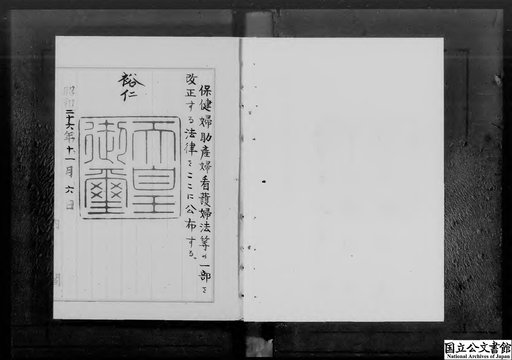 保健婦助産婦看護婦法等の一部を
改正する法律をここに公布する。
裕仁
天皇
御璽
昭和二十六年十一月六日
国立公文書館
National Archives of Japan